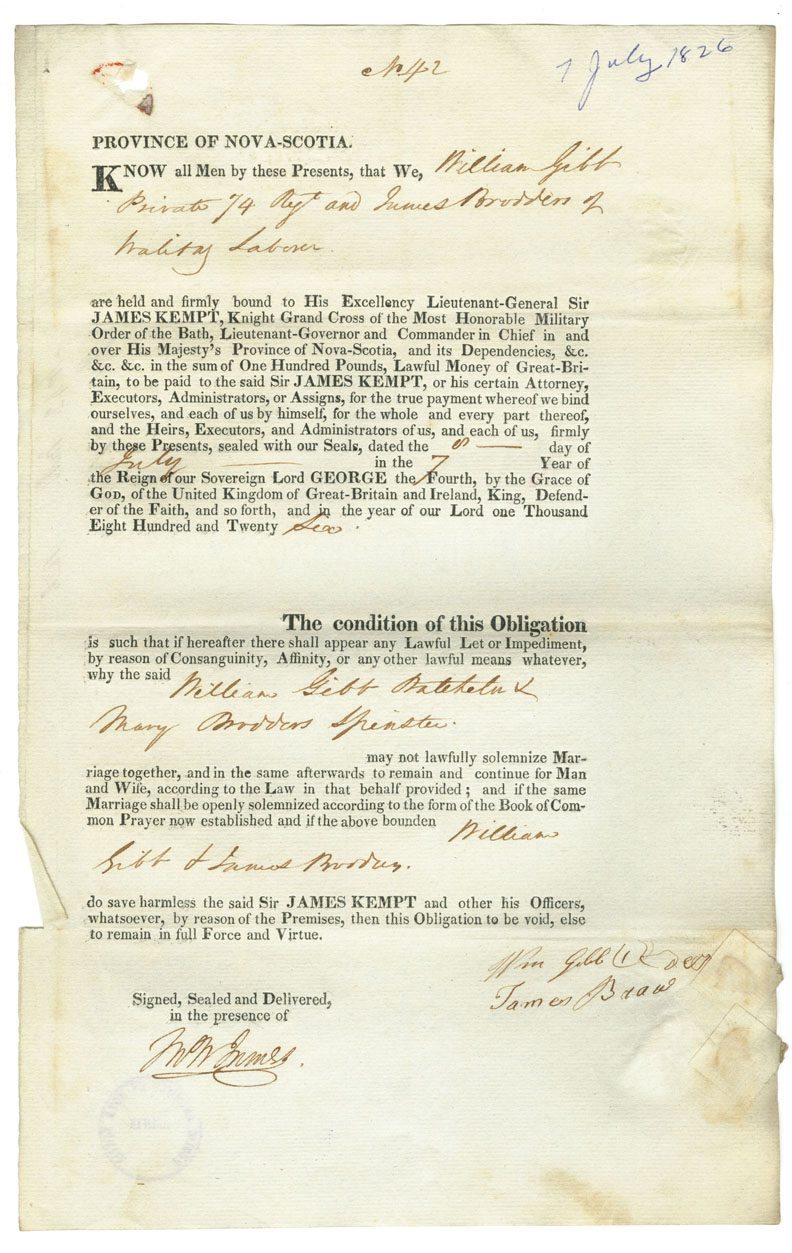 No 42
7 July 1826
PROVINCE OF NOVA-SCOTIA.
KNOW all Men by these Presents, that We, William Gibb
Private 74 Regt and James Brodders of
Halifax Laborer.
are held and firmly bound to His Excellency Lieutenant-General Sir
JAMES KEMPT, Knight Grand Cross of the Most Honorable Military
Order of the Bath, Lieutenant-Governor and Commander in Chief in and
over His Majesty's Province of Nova-Scotia, and its Dependencies, &c.
&c. &c. in the sum of One Hundred Pounds, Lawful Money of Great-Bri-
tain, to be paid to the said Sir JAMES KEMPT, or his certain Attorney,
Executors, Administrators, or Assigns, for the true payment whereof we bind
ourselves, and each of us by himself, for the whole and every part thereof,
and the Heirs, Executors, and Administrators of us, and each of us, firmly
by these Presents, sealed with our Seals, dated the 8 day of
July in the 7 Year of
the Reign of our Sovereign Lord GEORGE the Fourth, by the Grace of
GOD, of the United Kingdom of Great-Britain and Ireland, King, Defend-
er of the Faith, and so forth, and in the year of our Lord one Thousand
Eight Hundred and Twenty Six.
The condition of this Obligation
is such that if hereafter there shall appear any Lawful Let or Impediment,
by reason of Consanguinity, Affinity, or any other lawful means whatever,
why the said William Gibb Batchelor &
Mary Brodders Spinster.
may not lawfully solemnize Mar-
riage together, and in the same afterwards to remain and continue for Man
and Wife, according to the Law in that behalf provided; and if the same
Marriage shall be openly solemnized according to the form of the Book of Com-
mon Prayer now established and if the above bounden William
Gibb & James Brodders.
do save harmless the said Sir JAMES KEMPT and other his Officers,
whatsoever, by reason of the Premises, then this Obligation to be void, else
to remain in full Force and Virtue.
Wm Gibb
James
Signed, Sealed and Delivered,
in the presence of